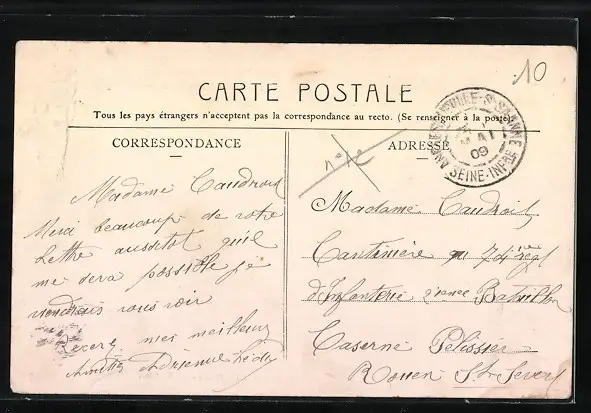 10
CARTE POSTALE
Tous les pays étrangers n'acceptent pas la correspondance au recto. (Se renseigner à la poste).
CORRESPONDANCE
Madame Caudron
Merci beaucoup de votre
lettre aussitot qu'il
me sera possible je
viendrais vous voir
Recevez mes meilleurs
Amitiés Adrienne
ADRESSE
MAI
09
SEINE-INFRE
Madame Caudron
Cantinière au 74 regt
d'Infanterie Bataillon
Caserne Pélissier
Rouen St Sever